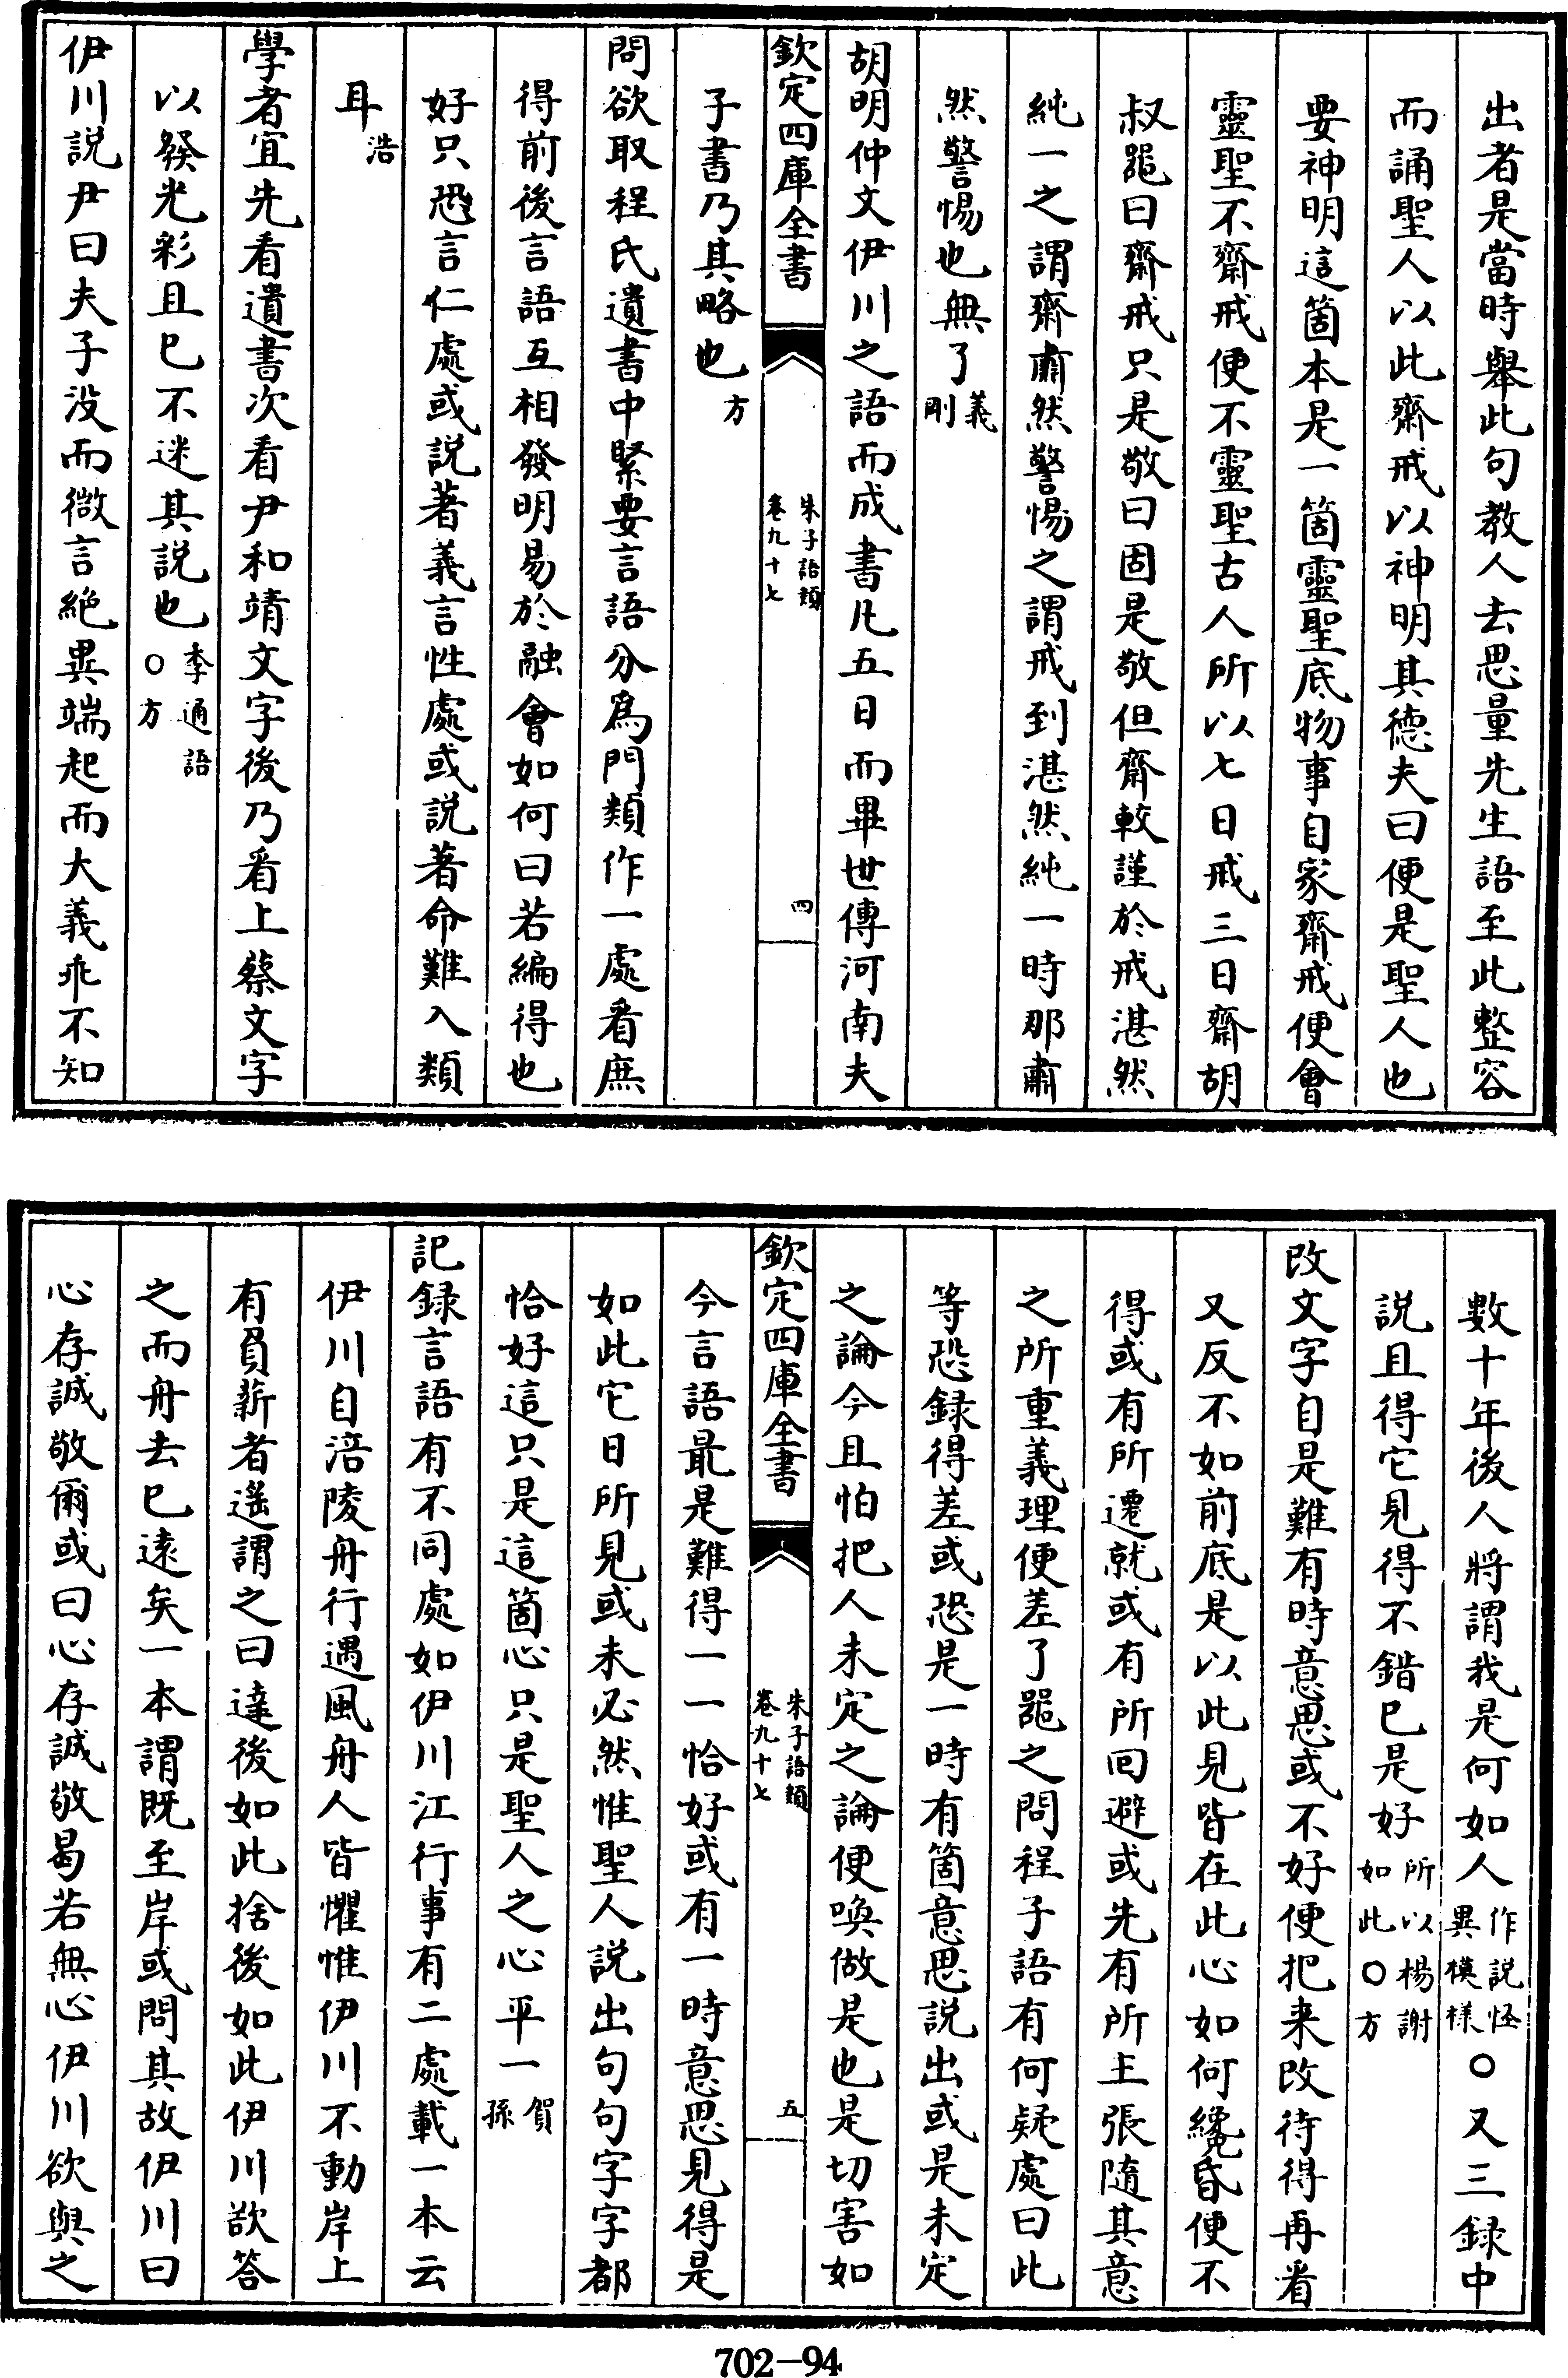 出者是當時舉此句教人去思量先生語至此整容
而誦聖人以此齋戒以神明其德夫曰便是聖人也
要神明這箇本是一箇靈聖底物事自家齋戒便會
靈聖不齋戒便不靈聖古人所以七日戒三日齋胡
叔器曰齋戒只是敬曰固是敬但齋較謹於戒湛然
純一之謂齋肅然警惕之謂戒到湛然純一時那肅
然警惕也無了義剛
胡明仲文伊川之語而成書凡五日而畢世傳河南夫
欽定四庫全書
朱子語類
卷九十七
四
子書乃其略也方
問欲取程氏遺書中緊要言語分為門類作一處看庶
得前後言語互相發明易於融會如何曰若編得也
好只恐言仁處或説著義言性處或説著命難入類
耳浩
學者宜先看遺書次看尹和靖文字後乃看上蔡文字
以發光彩且已不迷其説也李通語○方
伊川説尹曰夫子没而微言絶異端起而大義乖不知
數十年後人將謂我是何如人作説怪異模様○又三録中
説且得它見得不錯已是好所以楊謝如此○方
改文字自是難有時意思或不好便把来改待得再看
又反不如前底是以此見皆在此心如何纔昏便不
得或有所遷就或有所回避或先有所主張隨其意
之所重義理便差了器之問程子語有何疑處曰此
等恐録得差或恐是一時有箇意思説出或是未定
之論今且怕把人未定之論便喚做是也是切害如
欽定四庫全書
朱子語類
卷九十七
五
今言語最是難得一一恰好或有一時意思見得是
如此它日所見或未必然惟聖人説出句句字字都
恰好這只是這箇心只是聖人之心平一賀孫
記録言語有不同處如伊川江行事有二處載一本云
伊川自涪陵舟行遇風舟人皆懼惟伊川不動岸上
有負薪者遙謂之曰達後如此捨後如此伊川欲答
之而舟去已遠矣一本謂既至岸或問其故伊川曰
心存誠敬爾或曰心存誠敬曷若無心伊川欲與之
702-94